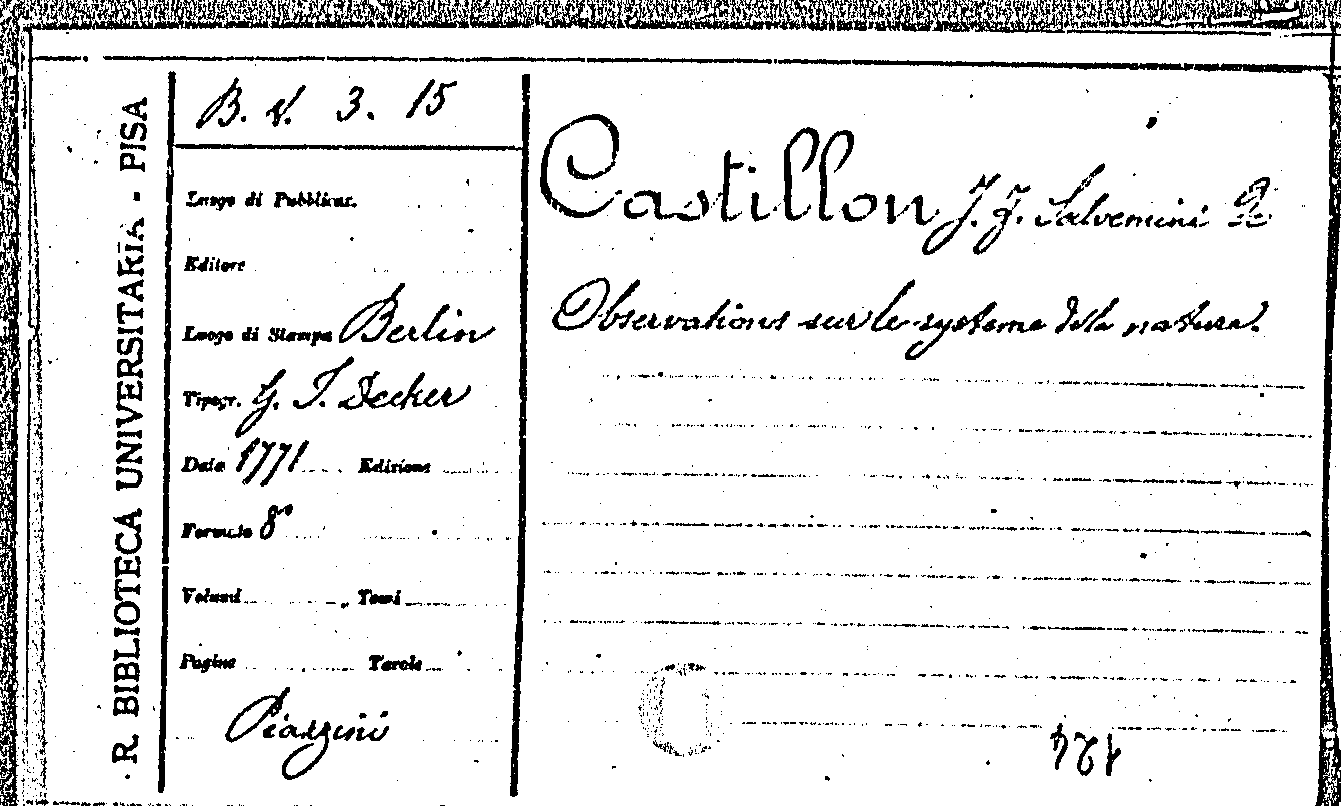 R. BIBLIOTECA UNIVERSITARIA - PISA
B. v. 3. 15
Luogo di Pubblicaz.
Editore
Luogo di Stampa Berlin
Tipogr. G. J. Decker
Data 1771 Edizione
Formato 8°
Volumi Tomi
Pagine Tavole
Piazzini
Castillon J. J. Salvemini De
Observations sur le systeme de la nature.